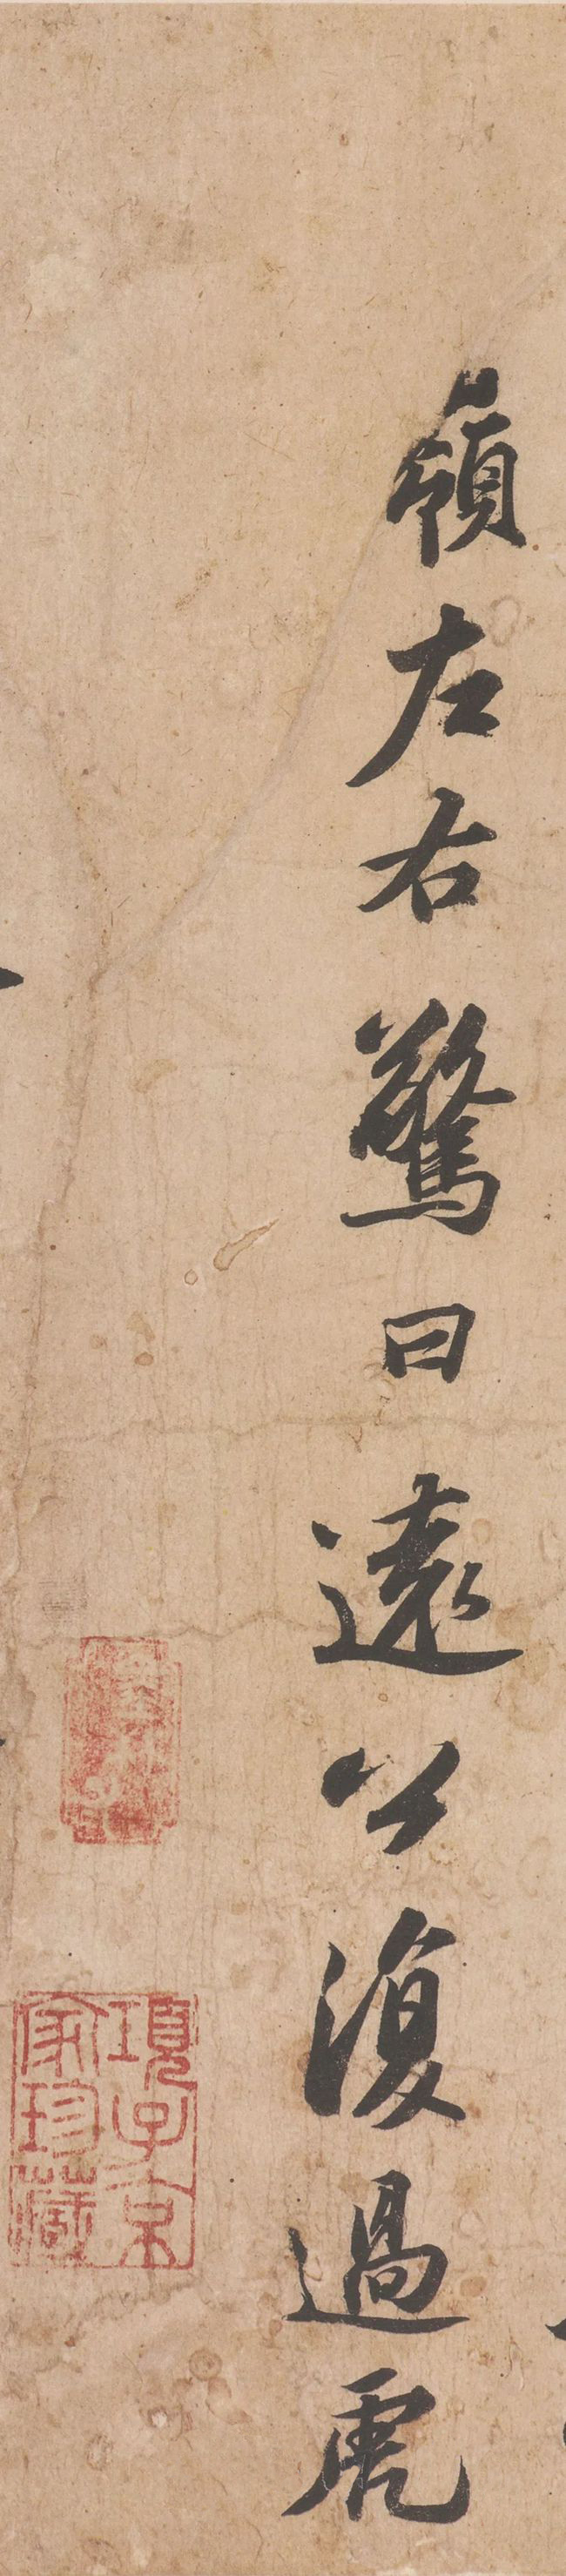 嶺左右驚曰遠公復過虎
項子京
家珍藏